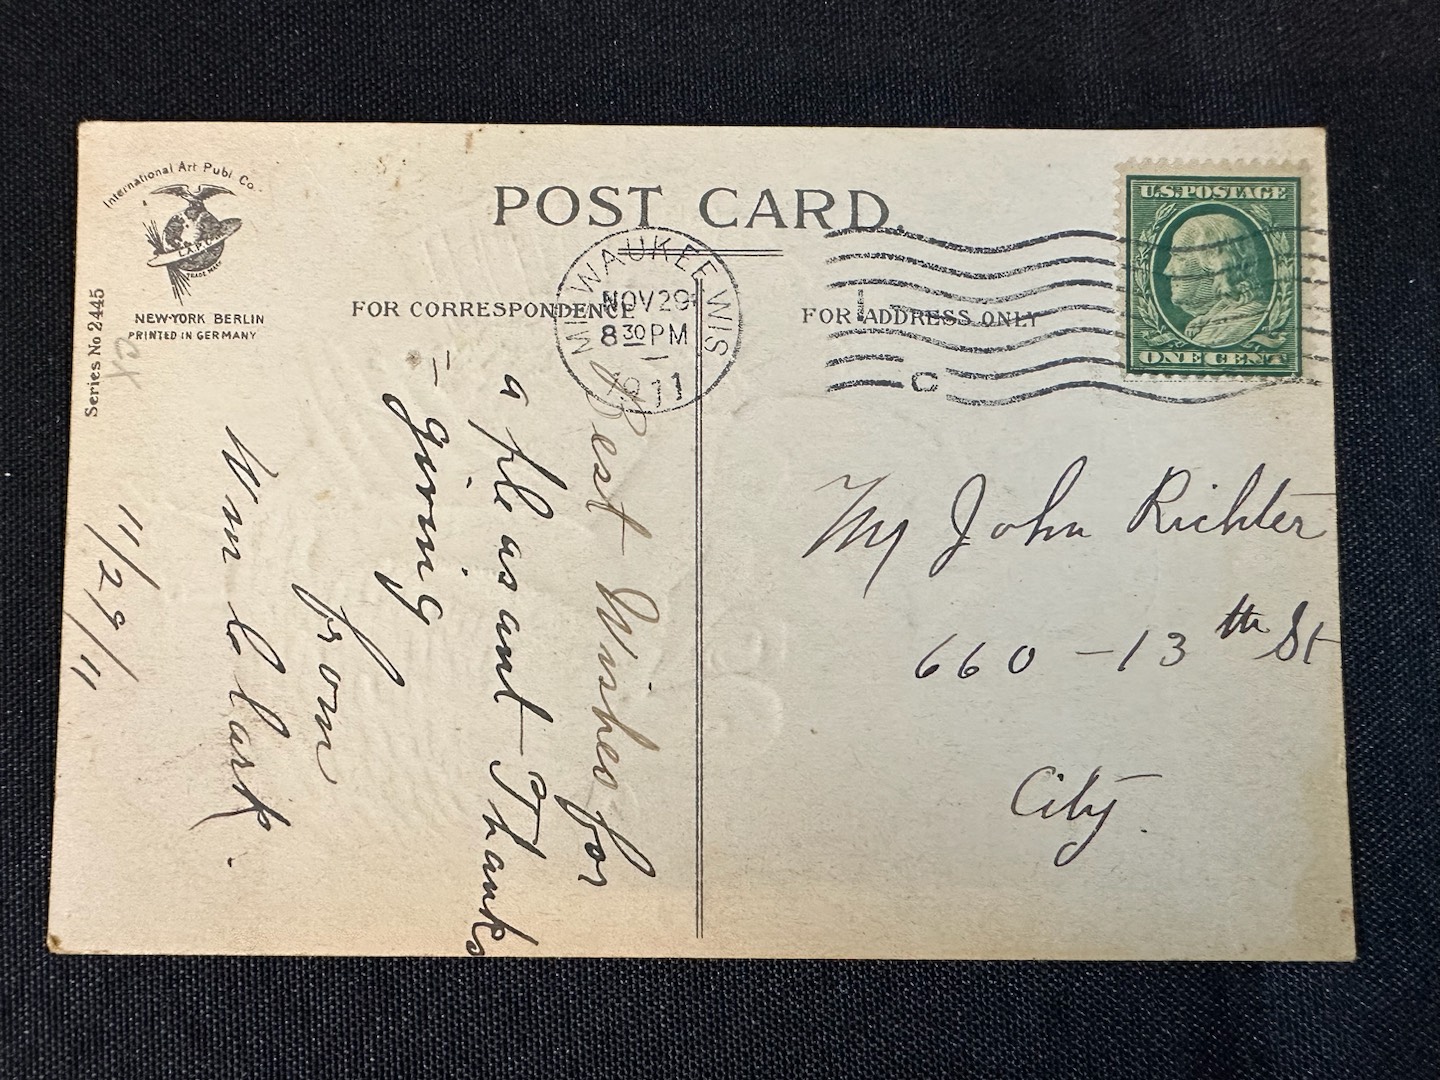 International Art Publ. Co.
I.A.P.C.
TRADE MARK
NEW-YORK BERLIN
PRINTED IN GERMANY
Series No 2445
POST CARD.
FOR CORRESPONDENCE
FOR ADDRESS ONLY
MILWAUKEE WIS
NOV 29
8 30 PM
1911
C
U.S. POSTAGE
ONE CENT
Best Wishes for
a pleasant Thanks
= giving
from
Wm Clark.
11/29/11
John Richter
660 - 13th St
City.